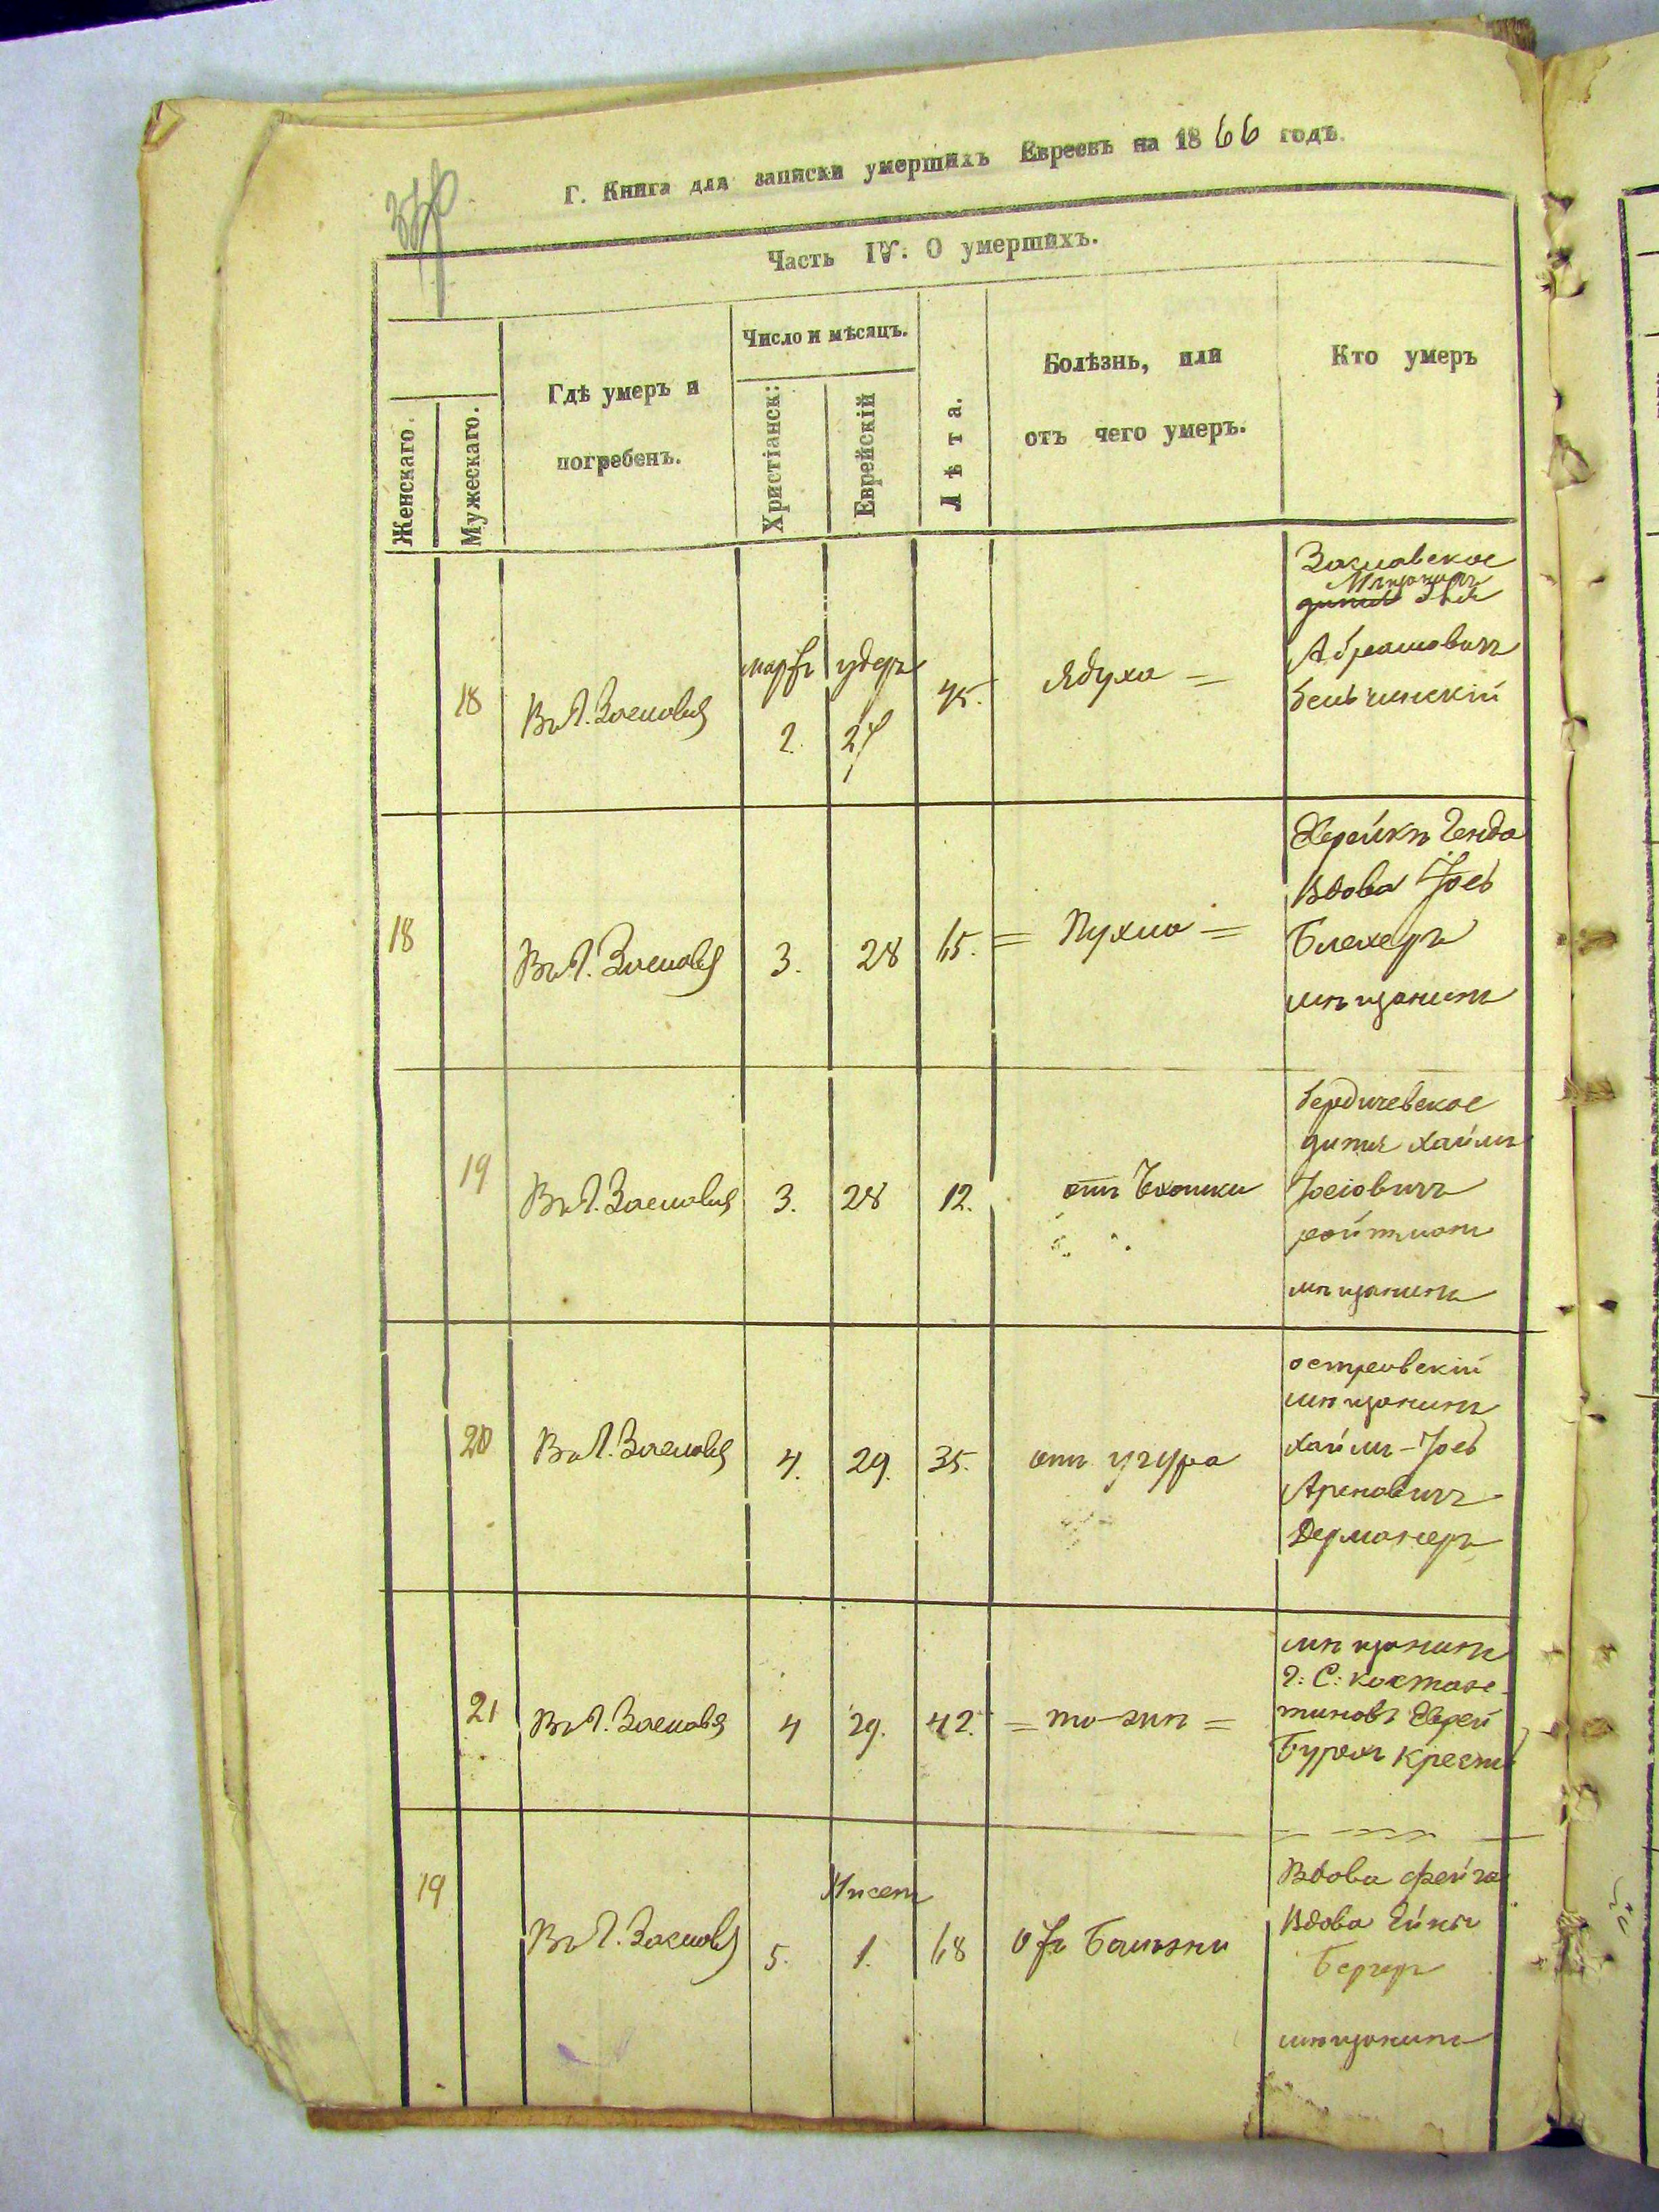 Г. Книга для записки умершихъ Евреевъ на 1866 годъ.
Часть IV: О умершихъ.
Женскаго.
Мужескаго.
Гдѣ умеръ и
погребенъ.
Число и мѣсяцъ.
Христіанск:
Еврейскій
Лѣта.
Болѣзнь, или
отъ чего умеръ.
Кто умеръ
18
Въ Г. Заславѣ
мартъ
2.
удеръ
27
45.
Ядуха =
Заславское
Мѣщанинъ
дитя
Абрамовичъ
18
Въ Г. Заславѣ
3.
28
65.
= Пухла =
Еврейкъ Генда
Вдова Іось
Блехеръ
мѣщанинъ
19
Въ Г. Заславѣ
3.
28
12.
отъ
Бердичевское
дитя Хаимъ
Іосіовичъ
ройтманъ
мѣщанинъ
20
Въ Г. Заславѣ
4.
29.
35.
отъ
островскій
мѣщанинъ
Хаимъ-Іось
Ароновичъ
Дерманеръ
21
Въ Г. Заславѣ
4
29.
42.
=
=
мѣщанинъ
г: С: костан-
тиновъ Еврей
19
Въ Г. Заславѣ
5.
Нисенъ
1.
68
отъ
Вдова Фейга
Вдова
Бергеръ
мѣщанинъ